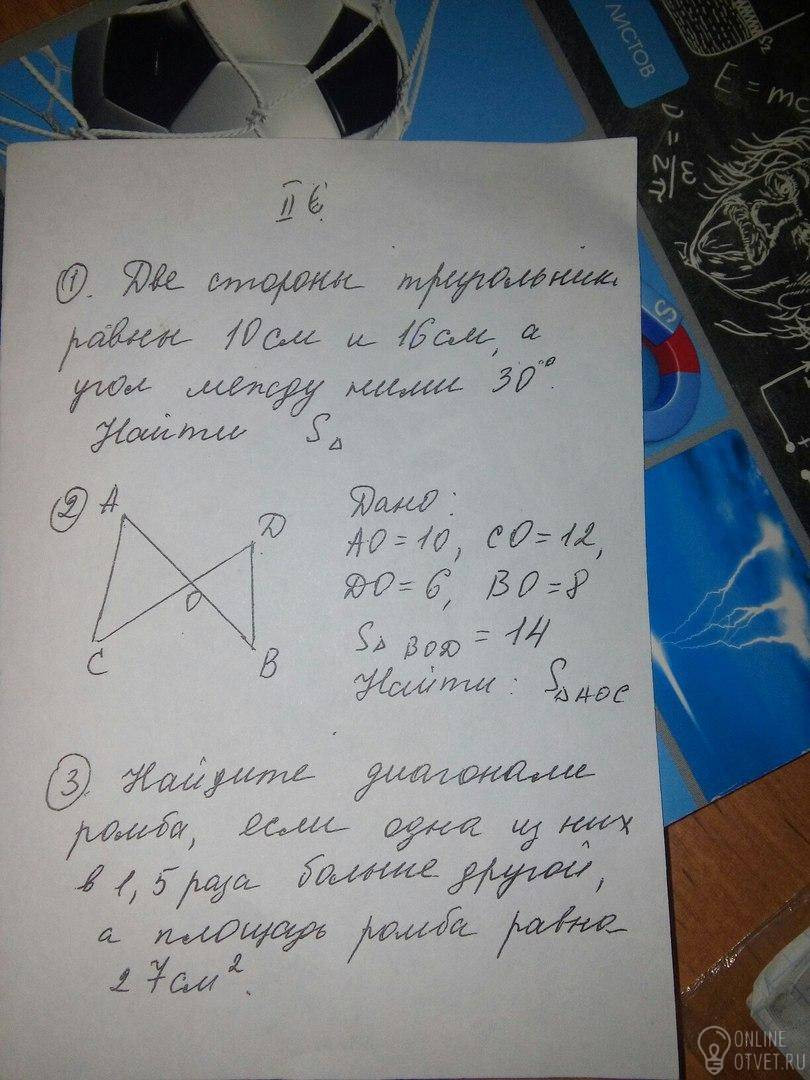 ЛИСТОВ
E = mc
ν = ω/2π
II В
① Две стороны треугольник
равны 10 см и 16 см, а
угол между ними 30°.
Найти S△
② A
D
O
C
B
Дано:
AO = 10, CO = 12,
DO = 6, BO = 8
S△ BOD = 14
Найти: S△AOC
③ Найдите диагонали
ромба, если одна из них
в 1,5 раза больше другой,
а площадь ромба равна
27 см².
ONLINE
OTVET.RU